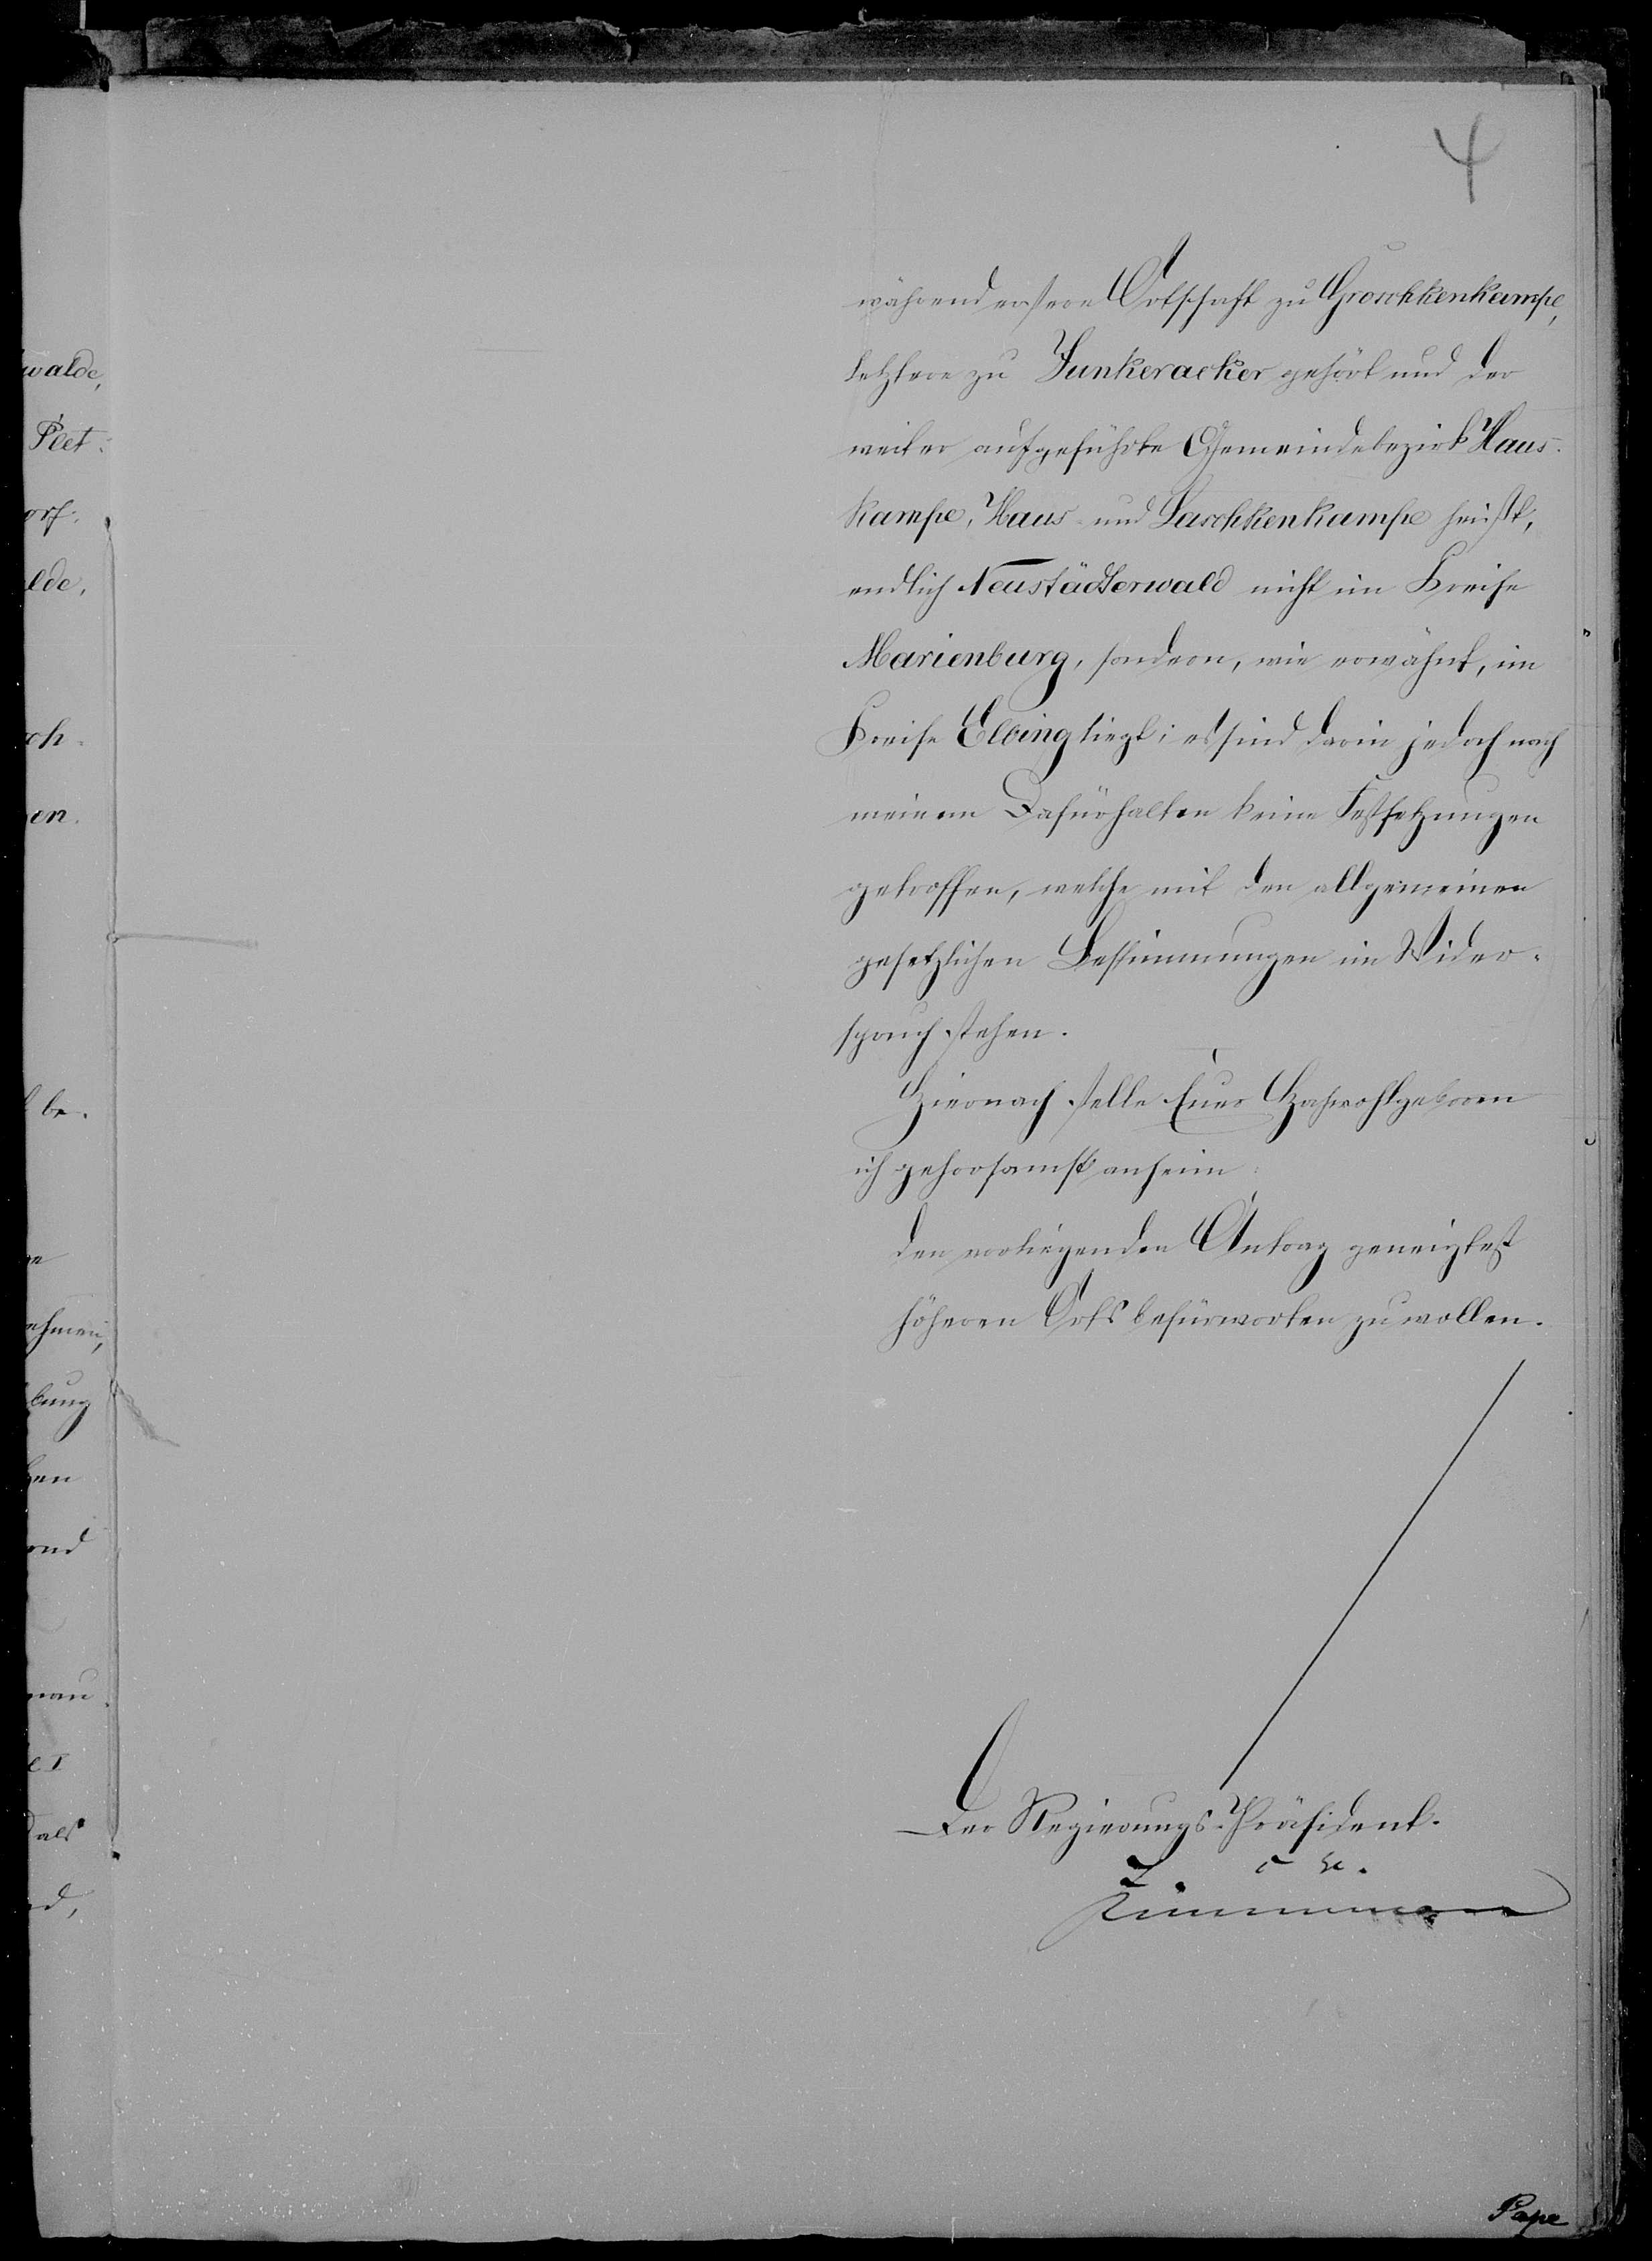 4
während erstere Ortschaft zu Groschkenkampe,
letztere zu Junkeracker gehört und der
weiter aufgeführte Gemeindebezirk Haus-
kampe, Haus- und Laschkenkampe heißt,
endlich Neustädterwald nicht im Kreise
Marienburg, sondern, wie erwähnt, im
Kreise Elbing liegt; es sind darin jedoch nach
meinem Dafürhalten keine Festsetzungen
getroffen, welche mit den allgemeinen
gesetzlichen Bestimmungen im Wider-
spruch stehen.
Hiernach stelle Euer Hochwohlgeboren
ich gehorsamst anheim
den vorliegenden Antrag geneigtest
höheren Orts befürworten zu wollen.
Der Regierungs-Präsident.
Pape
walde,
Plet-
orf,
lde,
sch-
en.
be-
ehmen,
bung
nau
als